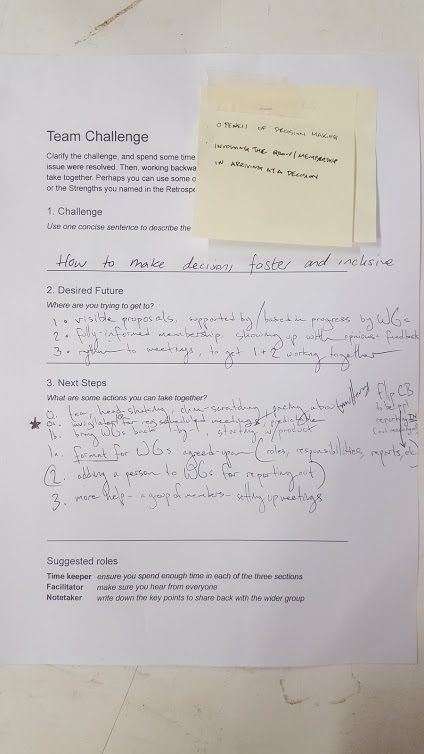 OPENESS OF DECISION MAKING
INVOLVING THE GROUP/MEMBERSHIP
IN ARRIVING AT A DECISION
Team Challenge
Clarify the challenge, and spend some time
issue were resolved. Then, working backwa
take together. Perhaps you can use some o
or the Strengths you named in the Retrospe
1. Challenge
Use one concise sentence to describe the
How to make decisions faster and inclusive
2. Desired Future
Where are you trying to get to?
1. visible proposals, supported by/based in progress by WGs
2. fully-informed membership, showing up with opinions + feedback
3. rythm to meetings, to get 1+2 working together
3. Next Steps
What are some actions you can take together?
0. fear, head shaking, chin-scratching, pacing about
0a. for reg scheduled meetings, predictable
1b. bring WGs back together, starting w/ product
1a. format for WGs agreed-upon (roles, responsibilities, reports, etc)
(2. adding a person to WGs for reporting out)
3. more help - a group of members - setting up meetings
Flip CB
to be
reporting IN
Suggested roles
Time keeper ensure you spend enough time in each of the three sections
Facilitator make sure you hear from everyone
Notetaker write down the key points to share back with the wider group